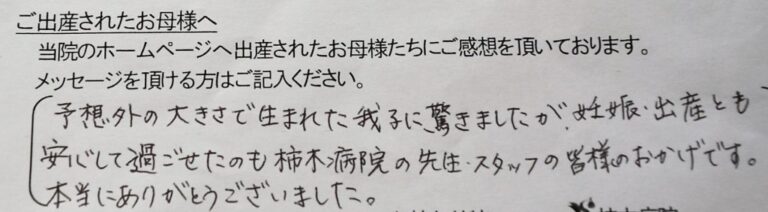 ご出産されたお母様へ
当院のホームページへ出産されたお母様たちにご感想を頂いております。
メッセージを頂ける方はご記入ください。
予想外の大きさで生まれた我子に驚きましたが、妊娠・出産とも
安心して過ごせたのも柿木病院の先生・スタッフの皆様のおかげです。
本当にありがとうございました。